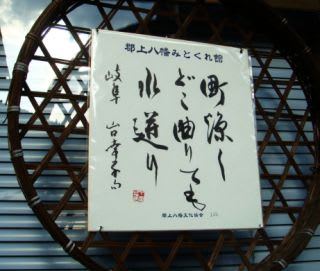 郡上八幡みとくれ館
町涼し
どこ曲りても
水通り
岐阜
郡上八幡文化協会